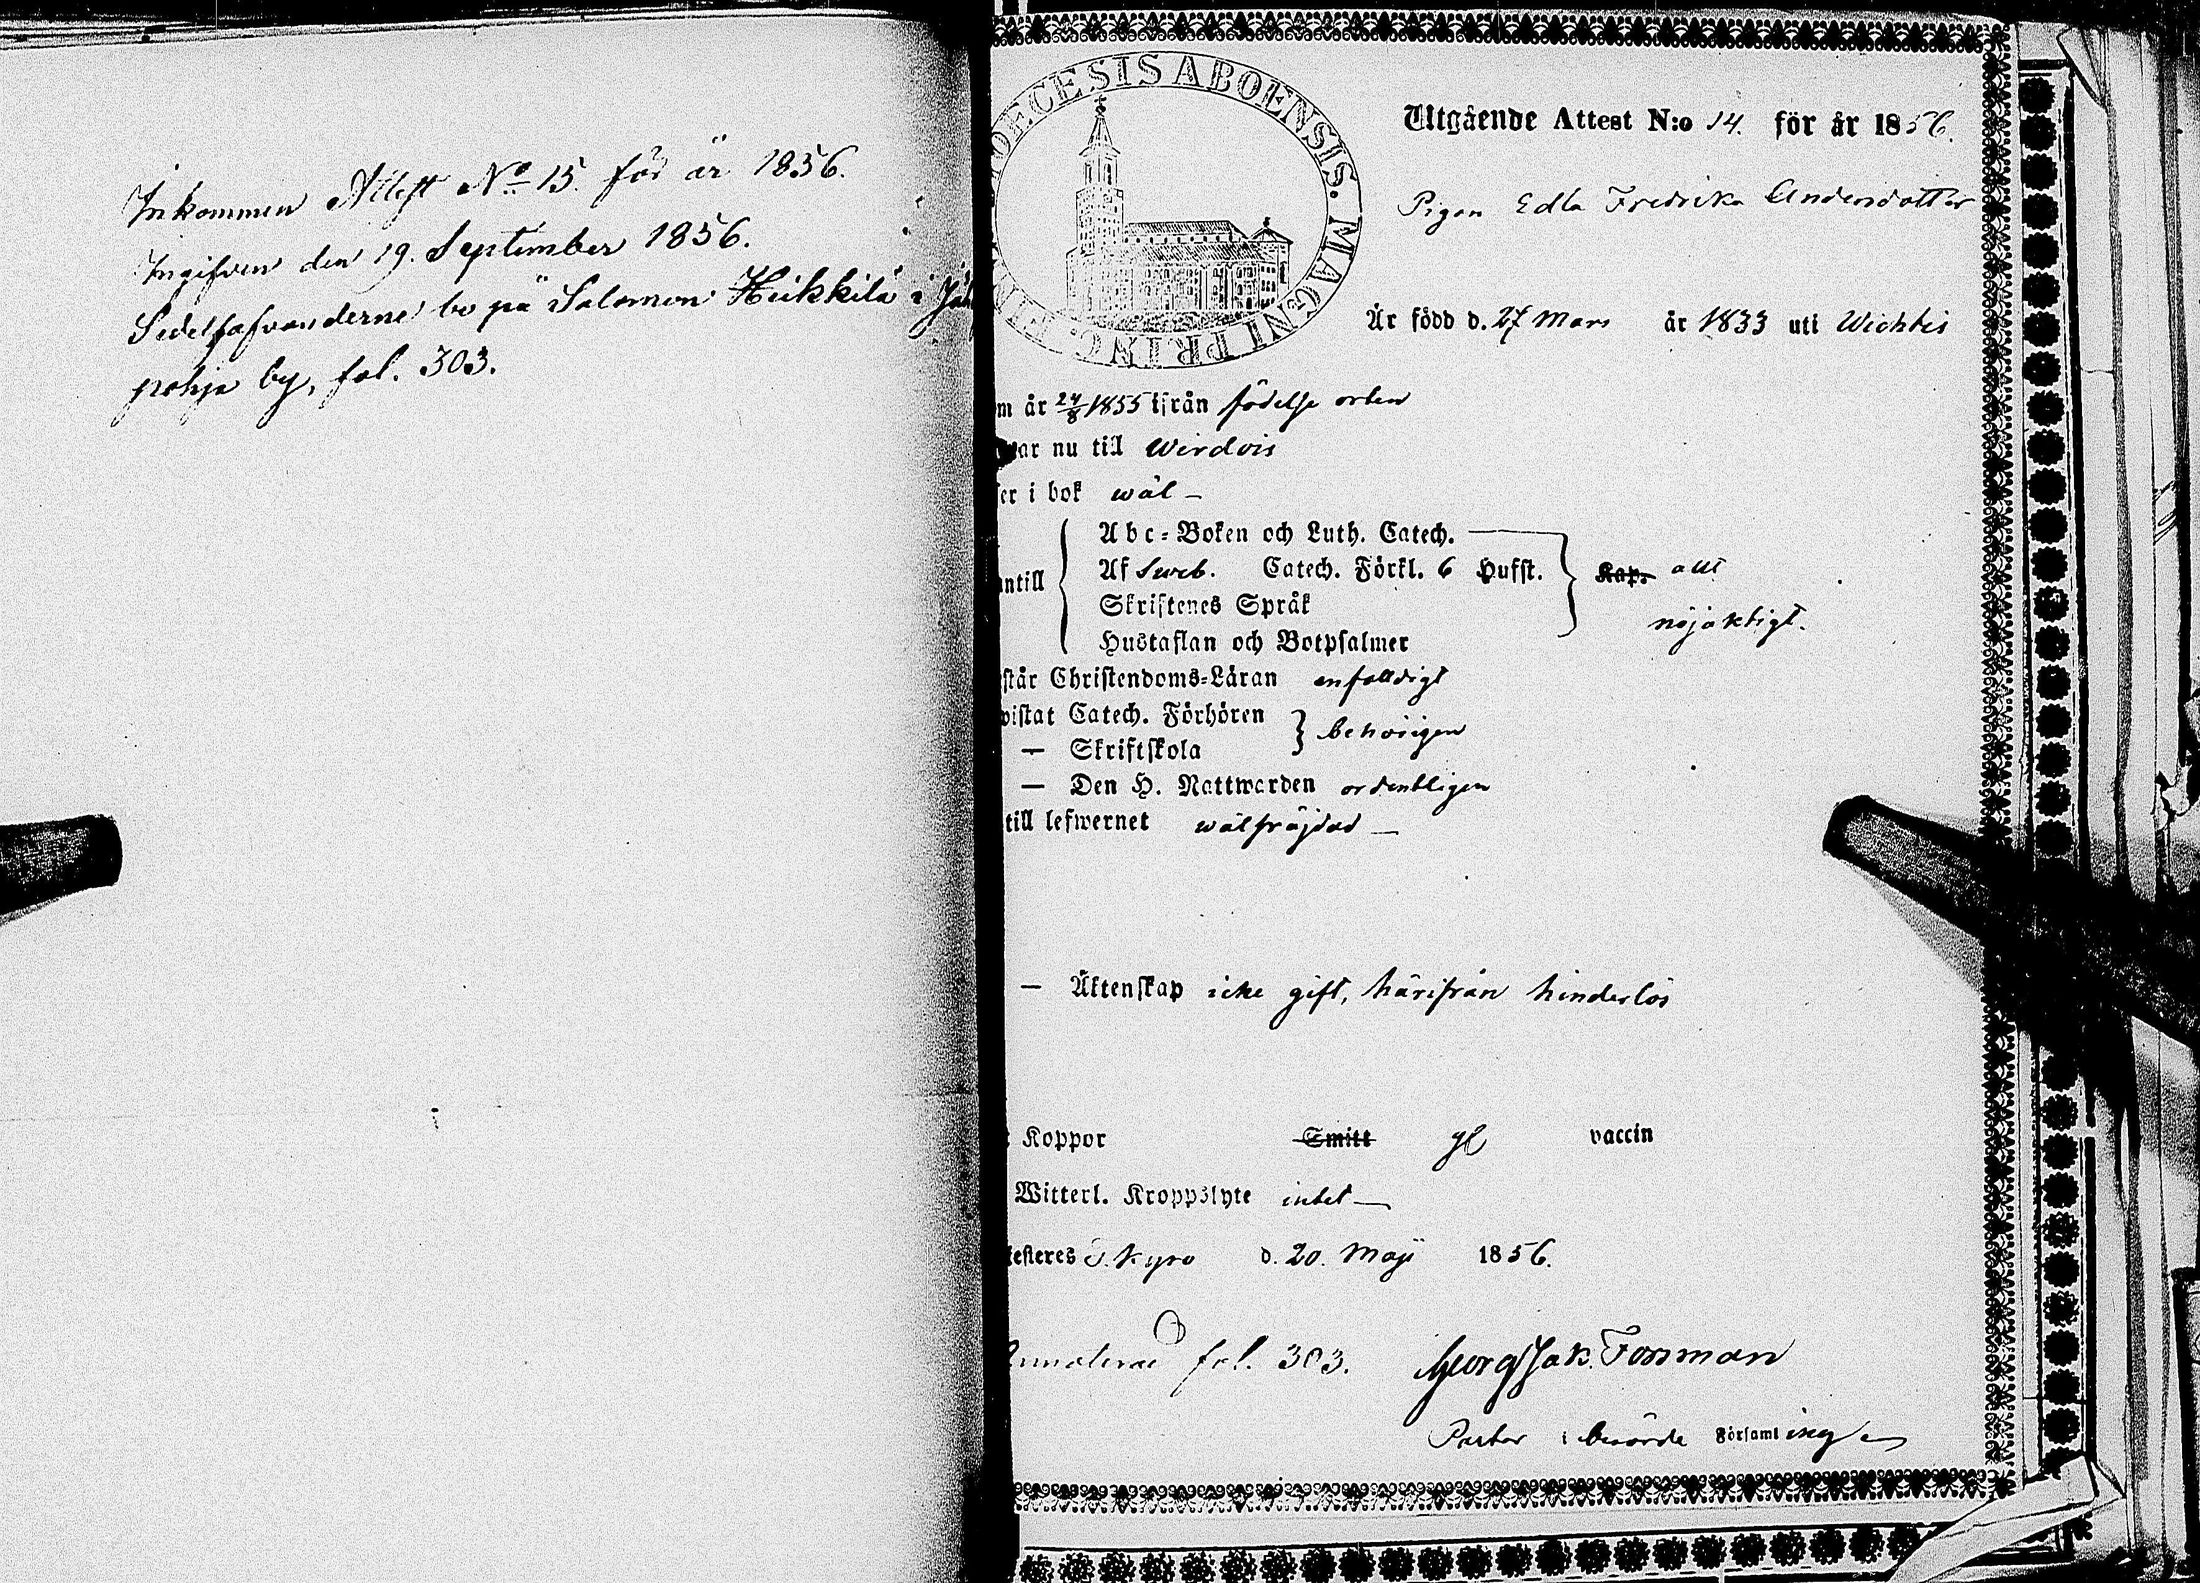 Inkommen Attest No 15. för år 1856.
Ingifven den 19. September 1856.
Sedelhafvanderne bo på Salomon Heikkilä i Jäh
pohja by, fol. 303.
DIOECESIS ABOENSIS. MAGNI PRINC. FIN
Utgående Attest N:o 14. för år 1856.
Pigan Edla Fredrika Andersdotter
Är född d. 27 Mars år 1833 uti Wichtis
m år 24/8 1855 ifrån födelse orten
ar nu till Wirdois
er i bok wäl –
Abc-Boken och Luth. Catech.
ntill Af Sveb. Catech. Förkl. 6 Hufst. Kap. allt
Skriftenes Språk nöjaktigt.
Hustaflan och Botpsalmer
står Christendoms-Läran enfaldigt
vistat Catech. Förhören behörigen
— Skriftskola
— Den H. Nattwarden ordentligen
till lefwernet wälfräjdad —
— Äktenskap icke gift, härifrån hinderlös
Koppor Smitt gl vaccin
Witterl. Kroppslyte intet —
testeres i S. Kyro d. 20. Maji 1856.
fol. 303. Georg Jak. Forsman
Pastor i berörde Församlingen